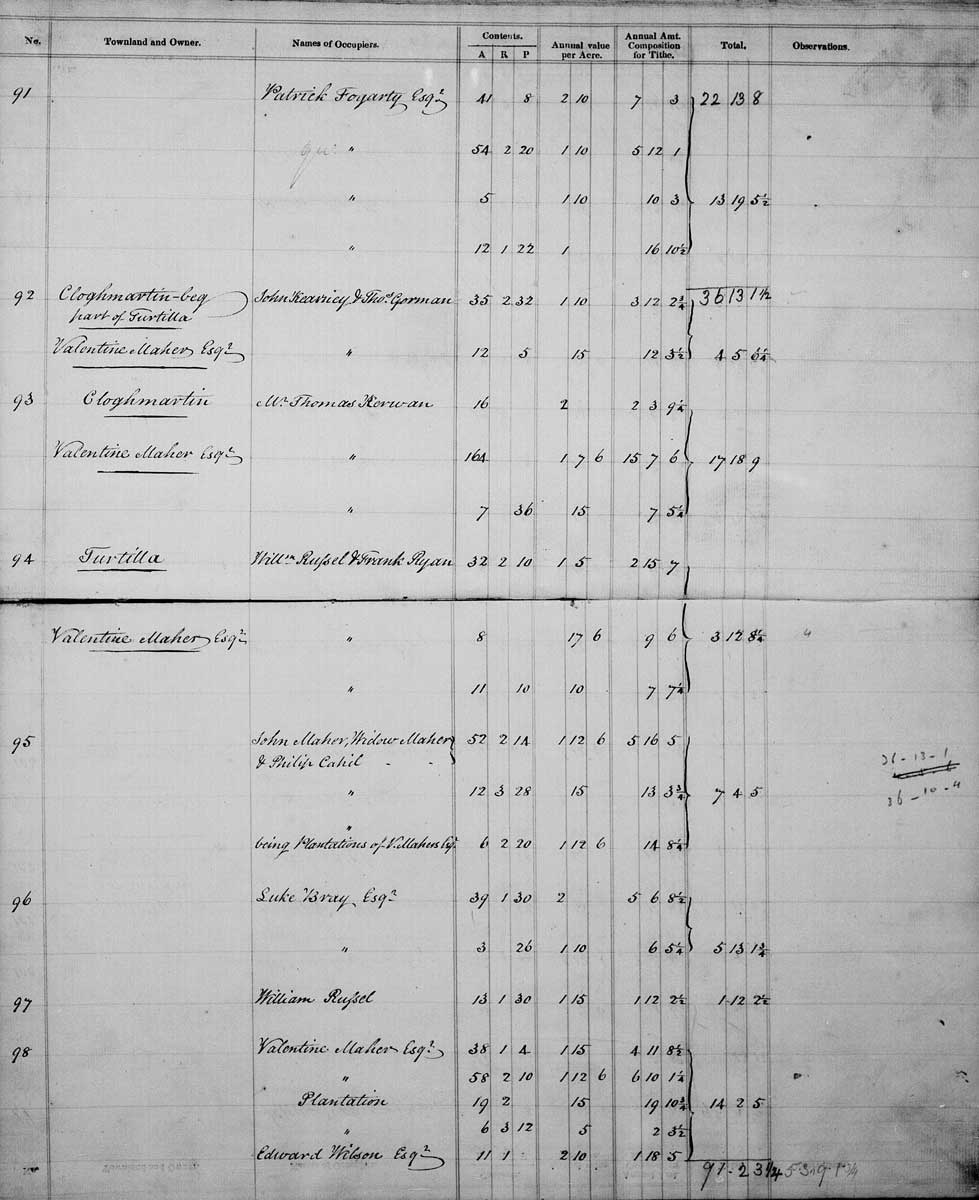 No. Townland and Owner. Names of Occupiers. Contents. A R P Annual value per Acre. Annual Amt. Composition for Tithe. Total. Observations.
91 Patrick Fogarty Esqr 41 8 2 10 7 3 22 13 8
" 54 2 20 1 10 5 12 1
" 5 1 10 10 3 13 19 5½
" 12 1 22 1 16 10½
92 Cloghmartin-beg John Kearney & Thos Gorman 35 2 32 1 10 3 12 2¾ 36 13 1½
part of Turtilla
Valentine Maher Esqr " 12 5 15 12 3½ 4 5 6¼
93 Cloghmartin Mr Thomas Kerwan 16 2 2 3 9¼
Valentine Maher Esqr " 164 1 7 6 15 7 6 17 18 9
" 7 36 15 7 5¼
94 Turtilla Willm Russel & Frank Ryan 32 2 10 1 5 2 15 7
Valentine Maher Esqr " 8 17 6 9 6 3 12 8¼
" 11 10 10 7 7¼
95 John Maher, Widow Maher 52 2 14 1 12 6 5 16 5
& Philip Cahil - -
36-13-1
" 12 3 28 15 13 3¾ 7 4 5
36-10-4
"
being Plantations of V. Mahers Esqr 6 2 20 1 12 6 14 8¼
96 Luke Bray Esqr 39 1 30 2 5 6 8½
" 3 26 1 10 6 5¼ 5 13 1¾
97 William Russel 13 1 30 1 15 1 12 2½ 1-12 2½
98 Valentine Maher Esqr 38 1 4 1 15 4 11 8½
" 58 2 10 1 12 6 6 10 1¼
Plantation 19 2 15 19 10¾ 14 2 5
" 6 3 12 5 2 3½
Edward Wilson Esqr 11 1 2 10 1 18 5
91-2 3¼